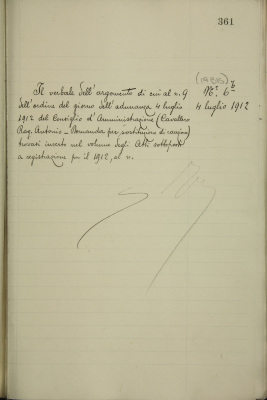 361
(1985)
N.° 6 7/2
4 luglio 1912
Il verbale dell'argomento di cui al n. 9
dell'ordine del giorno dell'adunanza 4 luglio
1912 del Consiglio d'Amministrazione (Cavallero
Rag. Antonio – Domanda per sostituzione di cauzione)
trovasi inserto nel volume degli Atti sottoposti
a registrazione per il 1912, al n.